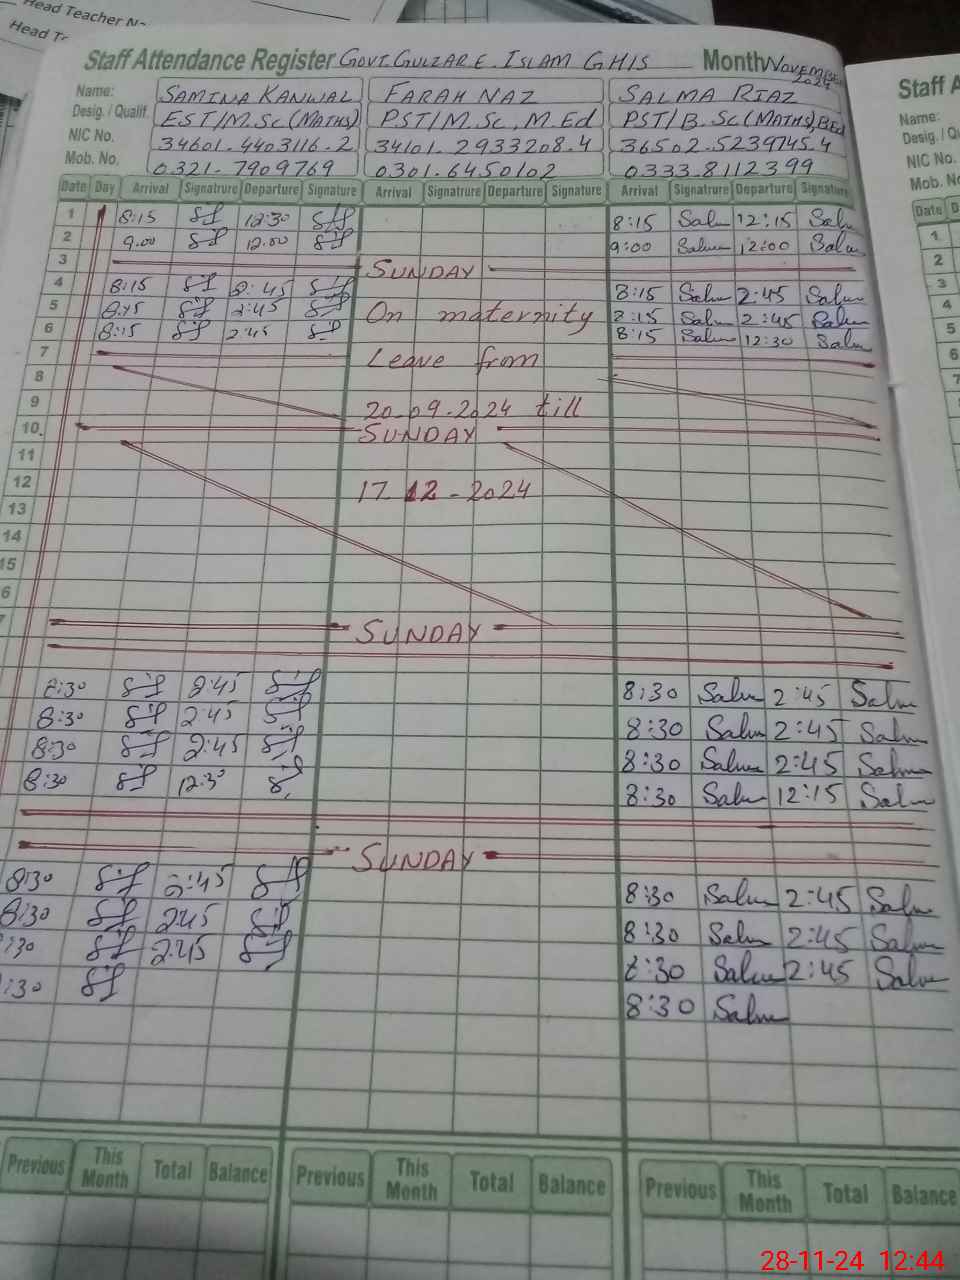 Head Teacher
Head
Staff Attendance Register GOVT. GULZAR E. ISLAM GHIS Month NOVEMBER 2024
Staff A
Name: SAMINA KANWAL FARAH NAZ SALMA RIAZ
Name:
Desig. / Qualif. EST/M.Sc(MATHS) PST/M.Sc, M.Ed PST/B.Sc(MATHS), BEd
Desig. / Q
NIC No. 34601.4403116.2 34101.2933208.4 36502.5239745.4
NIC No.
Mob. No. 0321.7909769 0301.6450102 0333.8112399
Mob. No
Date Day Arrival Signatrure Departure Signature Arrival Signatrure Departure Signature Arrival Signatrure Departure Signature
Date D
1 8:15 12:30 8:15 Salm 12:15 Salm
1
2 9.00 12.00 9:00 Salm 12:00 Salm
2
3 SUNDAY
3
4 8:15 2:45 8:15 Salm 2:45 Salm
4
5 8:15 2:45 On maternity 8:15 Salm 2:45 Salm
5
6 8:15 2:45 8:15 Salm 12:30 Salm
6
7 Leave from
7
8
8
9 20-09-2024 till
10. SUNDAY
11
12 17.12-2024
13
14
15
6
7 SUNDAY
8:30 2:45 8:30 Salm 2:45 Salm
8:30 2:45 8:30 Salm 2:45 Salm
8:30 2:45 8:30 Salm 2:45 Salm
8:30 12:30 8:30 Salm 12:15 Salm
SUNDAY
8:30 2:45 8:30 Salm 2:45 Salm
8:30 2:45 8:30 Salm 2:45 Salm
:30 2:45 8:30 Salm 2:45 Salm
:30 8:30 Salm
Previous This Month Total Balance Previous This Month Total Balance Previous This Month Total Balance
28-11-24 12:44